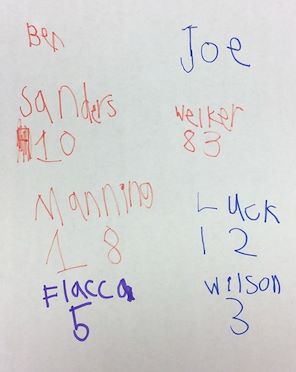 Ben
Joe
Sanders
10
Welker
83
Manning
18
Luck
12
Flacco
5
Wilson
3